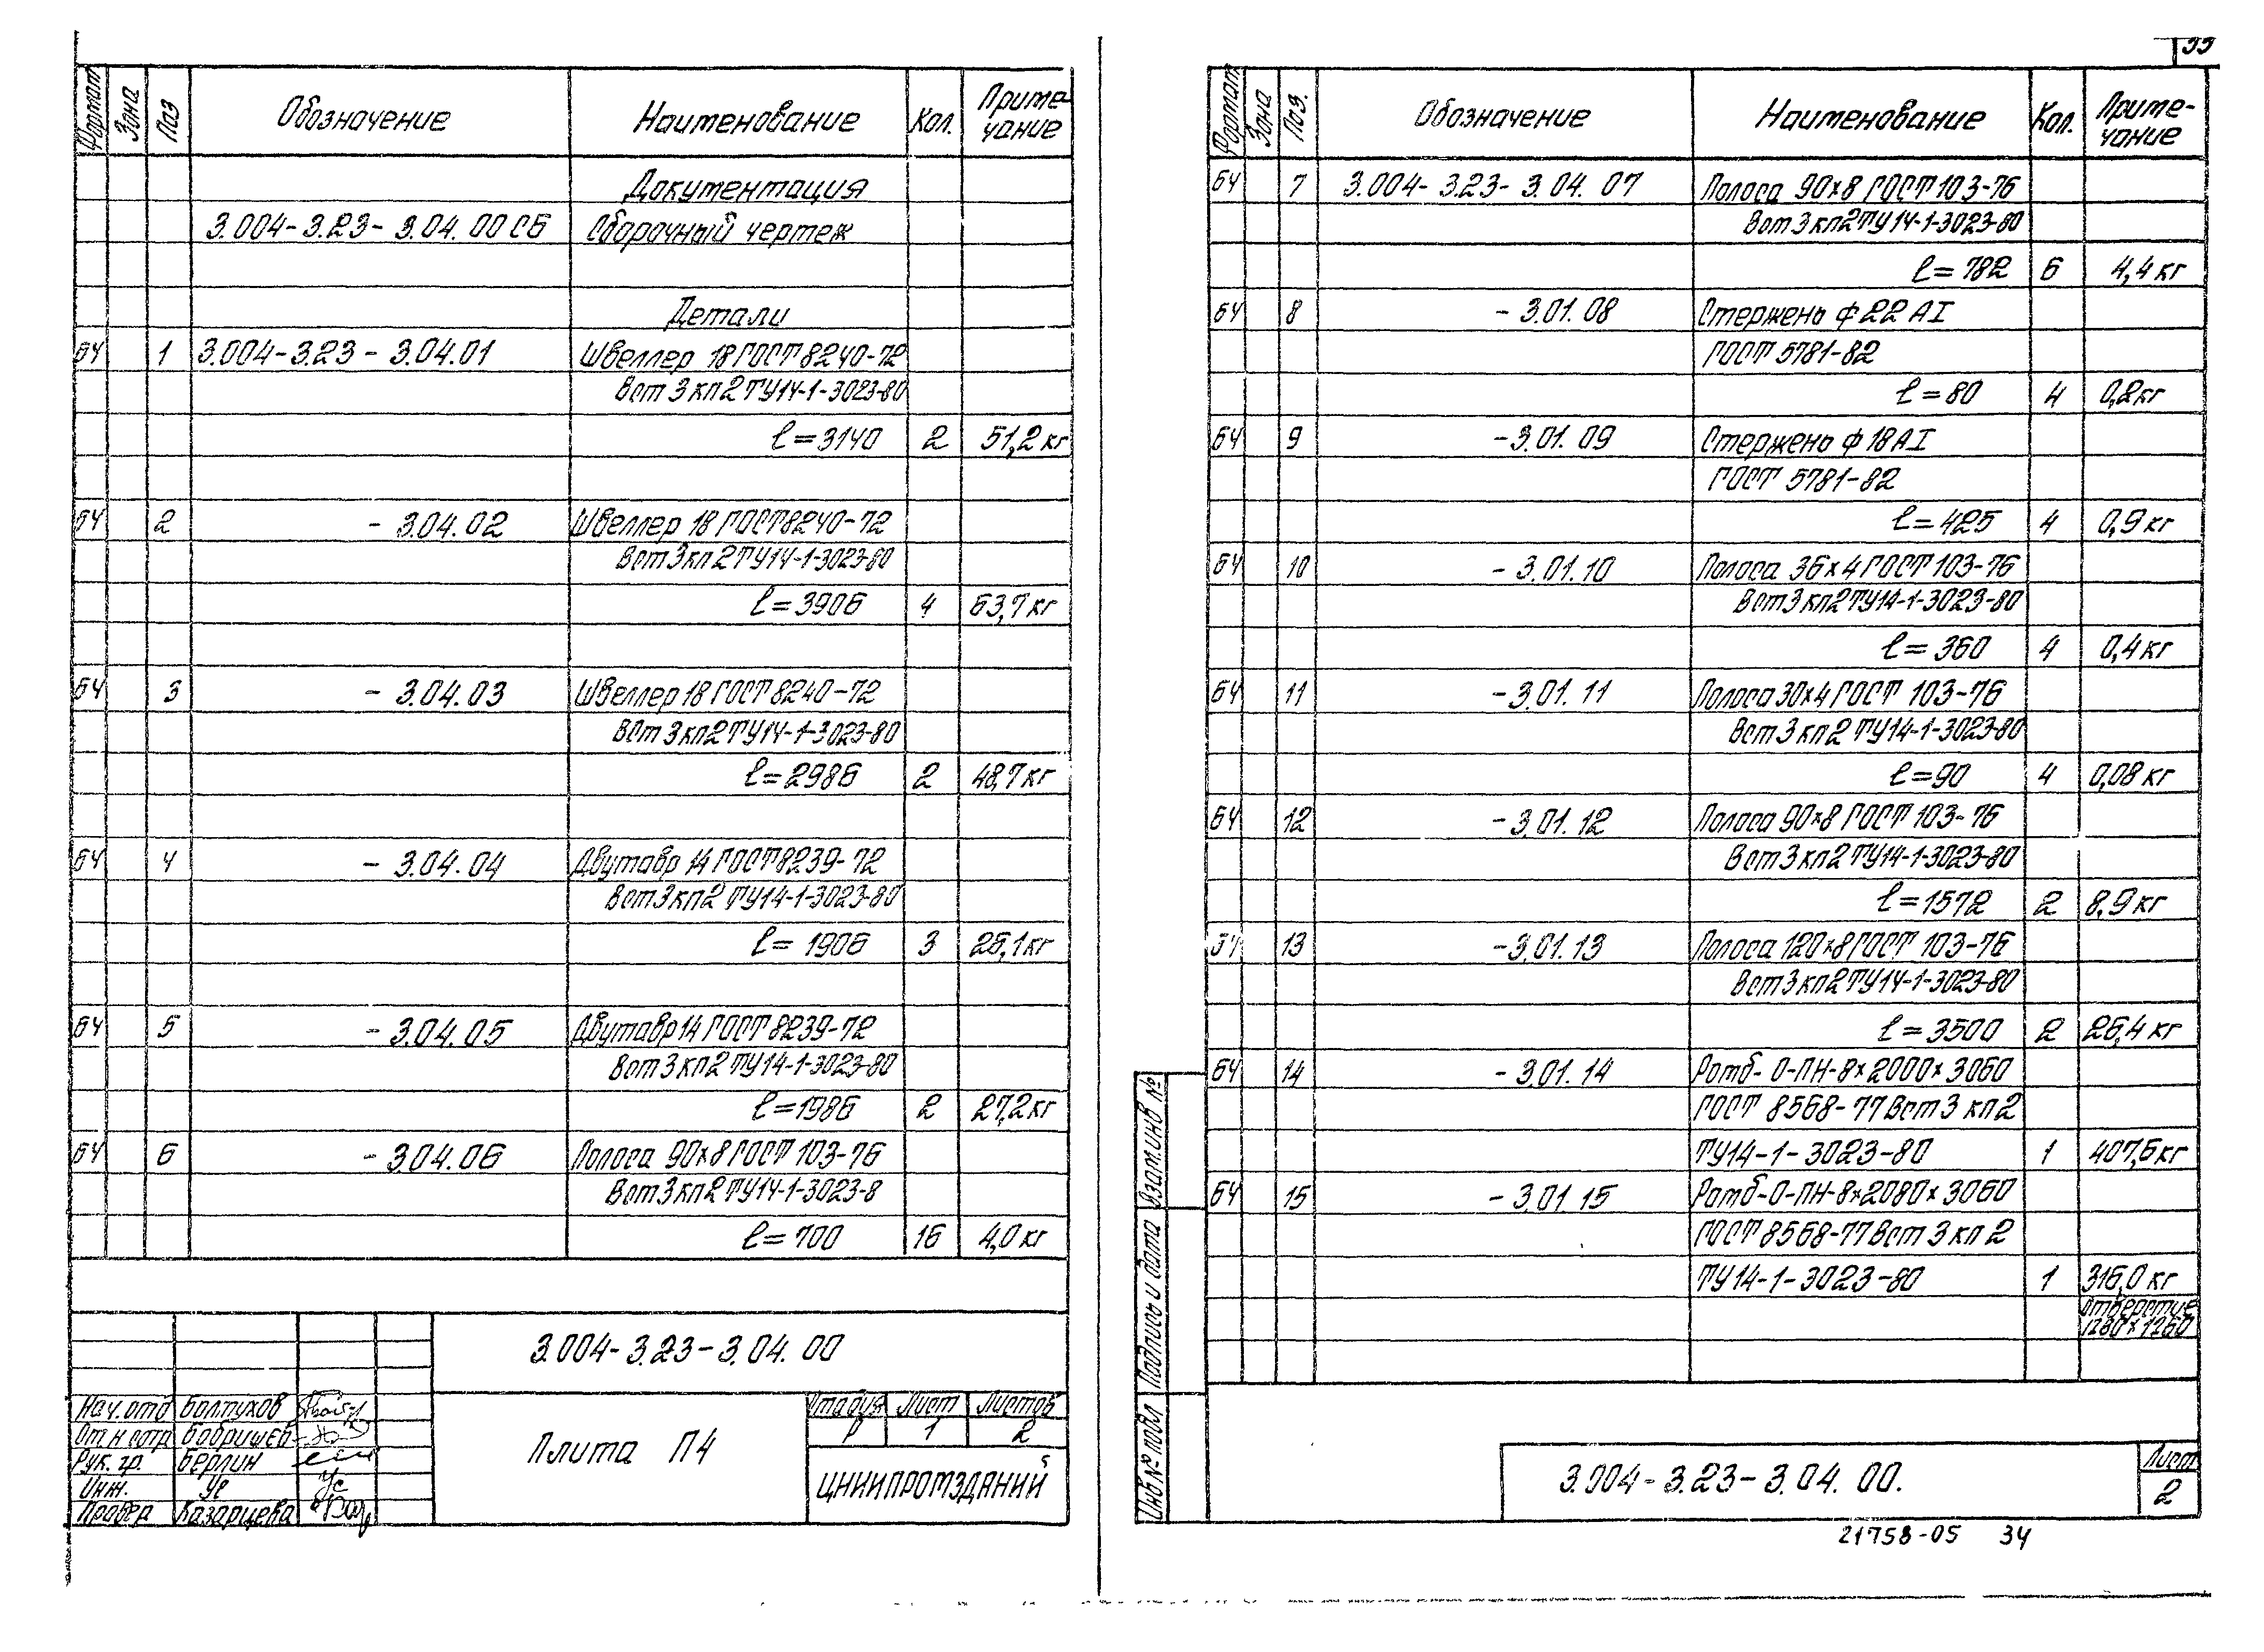 Формат Зона Поз Обозначение Наименование Кол. Приме-
чание
Документация
3.004-3.23-3.04.00СБ Сборочный чертеж
Детали
БЧ 1 3.004-3.23-3.04.01 Швеллер 18 ГОСТ 8240-72
Вст3кп2 ТУ14-1-3023-80
ℓ=3140 2 51,2кг
БЧ 2 -3.04.02 Швеллер 18 ГОСТ 8240-72
Вст3кп2 ТУ14-1-3023-80
ℓ=3906 4 63,7кг
БЧ 3 -3.04.03 Швеллер 18 ГОСТ 8240-72
Вст3кп2 ТУ14-1-3023-80
ℓ=2986 2 48,7кг
БЧ 4 -3.04.04 Двутавр 14 ГОСТ 8239-72
Вст3кп2 ТУ14-1-3023-80
ℓ=1906 3 26,1кг
БЧ 5 -3.04.05 Двутавр 14 ГОСТ 8239-72
Вст3кп2 ТУ14-1-3023-80
ℓ=1986 2 27,2кг
БЧ 6 -3.04.06 Полоса 90×8 ГОСТ 103-76
Вст3кп2 ТУ14-1-3023-8
ℓ=700 16 4,0кг
3.004-3.23-3.04.00
Нач.отд Болтухов
Бобришев
Рук. гр. Берлин
Инж. Ус
Провер Казарцева
Плита П4
Стадия Лист Листов
Р 1 2
ЦНИИПРОМЗДАНИЙ
Формат Зона Поз. Обозначение Наименование Кол. Приме-
чание
БЧ 7 3.004-3.23-3.04.07 Полоса 90×8 ГОСТ 103-76
Вст3кп2 ТУ14-1-3023-80
ℓ=782 6 4,4кг
БЧ 8 -3.01.08 Стержень ф22АI
ГОСТ 5781-82
ℓ=80 4 0,2кг
БЧ 9 -3.01.09 Стержень ф18АI
ГОСТ 5781-82
ℓ=425 4 0,9кг
БЧ 10 -3.01.10 Полоса 36×4 ГОСТ 103-76
Вст3кп2 ТУ14-1-3023-80
ℓ=360 4 0,4кг
БЧ 11 -3.01.11 Полоса 30×4 ГОСТ 103-76
Вст3кп2 ТУ14-1-3023-80
ℓ=90 4 0,08кг
БЧ 12 -3.01.12 Полоса 90×8 ГОСТ 103-76
Вст3кп2 ТУ14-1-3023-80
ℓ=1572 2 8,9кг
БЧ 13 -3.01.13 Полоса 120×8 ГОСТ 103-76
Вст3кп2 ТУ14-1-3023-80
ℓ=3500 2 26,4кг
БЧ 14 -3.01.14 Ромб-О-ПН-8×2000×3060
ГОСТ 8568-77 Вст3кп2
ТУ14-1-3023-80 1 407,6кг
БЧ 15 -3.01.15 Ромб-О-ПН-8×2080×3060
ГОСТ 8568-77 Вст3кп2
ТУ14-1-3023-80 1 316,0кг
Отверстие
1280×1260
Взам.инв №
Подпись и дата
Инв № подл
3.004-3.23-3.04.00.
Лист
2
21758-05 34